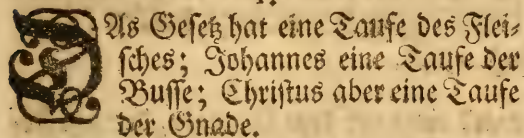 DAs Gesetz hat eine Taufe des Flei⸗
sches; Johannes eine Taufe der
Busse; Christus aber eine Taufe
der Gnade.